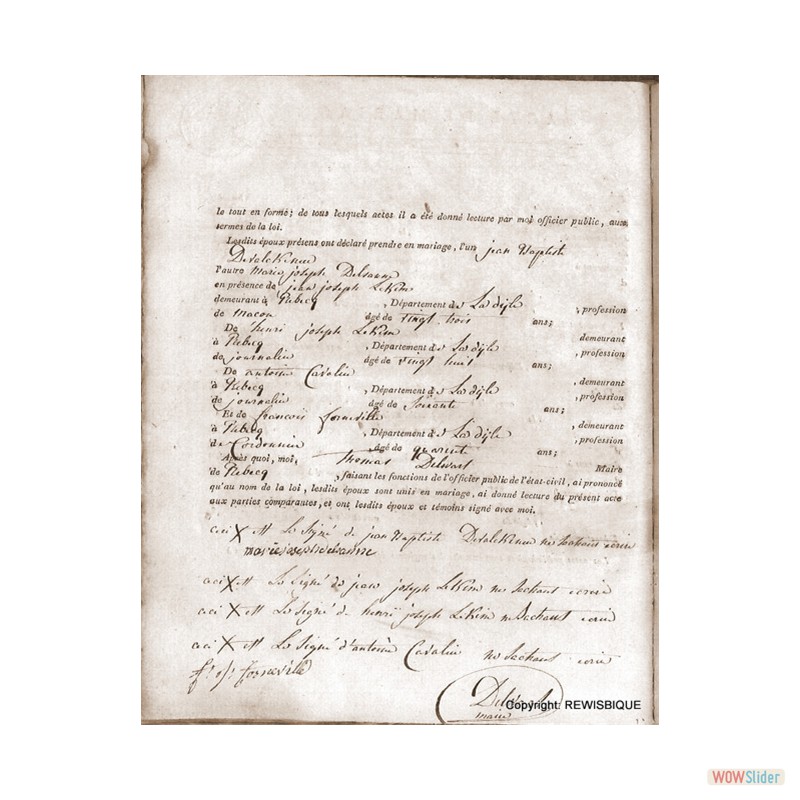 le tout en forme; de tous lesquels actes il a été donné lecture par moi officier public, aux
termes de la loi.
Lesdits époux présens ont déclaré prendre en mariage, l'un jean Baptiste
Devalckeneer
l'autre Marie joseph Delvanne
en présence de jean joseph Lekem
demeurant à Rebecq, Département de La dijle, profession
de macon âgé de vingt trois ans;
De henri joseph Lekem demeurant
à Rebecq, Département de La dijle, profession
de journalier âgé de vingt huit ans;
De antoine Cavalier, demeurant
à Rebecq, Département de La dijle, profession
de journalier âgé de Soixante ans;
Et de francois forneville, demeurant
à Rebecq, Département de La dijle, profession
de Cordonnier, âgé de quarente ans;
Après quoi, moi, Thomas Delwart Maire
de Rebecq, faisant les fonctions de l'officier public de l'état-civil, ai prononcé
qu'au nom de la loi, lesdits époux sont unis en mariage, ai donné lecture du présent acte
aux parties comparantes, et ont lesdits époux et témoins signé avec moi.
ceci X est Le Signé de jean Baptiste ne Sachant ecrire
marie joseph delvanne
ceci X est Le Signé de jean joseph Lekem ne Sachant ecrire
ceci X est Le Signé de henri joseph Lekem ne Sachant ecrire
ceci X est Le Signé d'antoine Cavalier ne Sachant ecrire
forneville
maire
Copyright: REWISBIQUE
WOWSlider